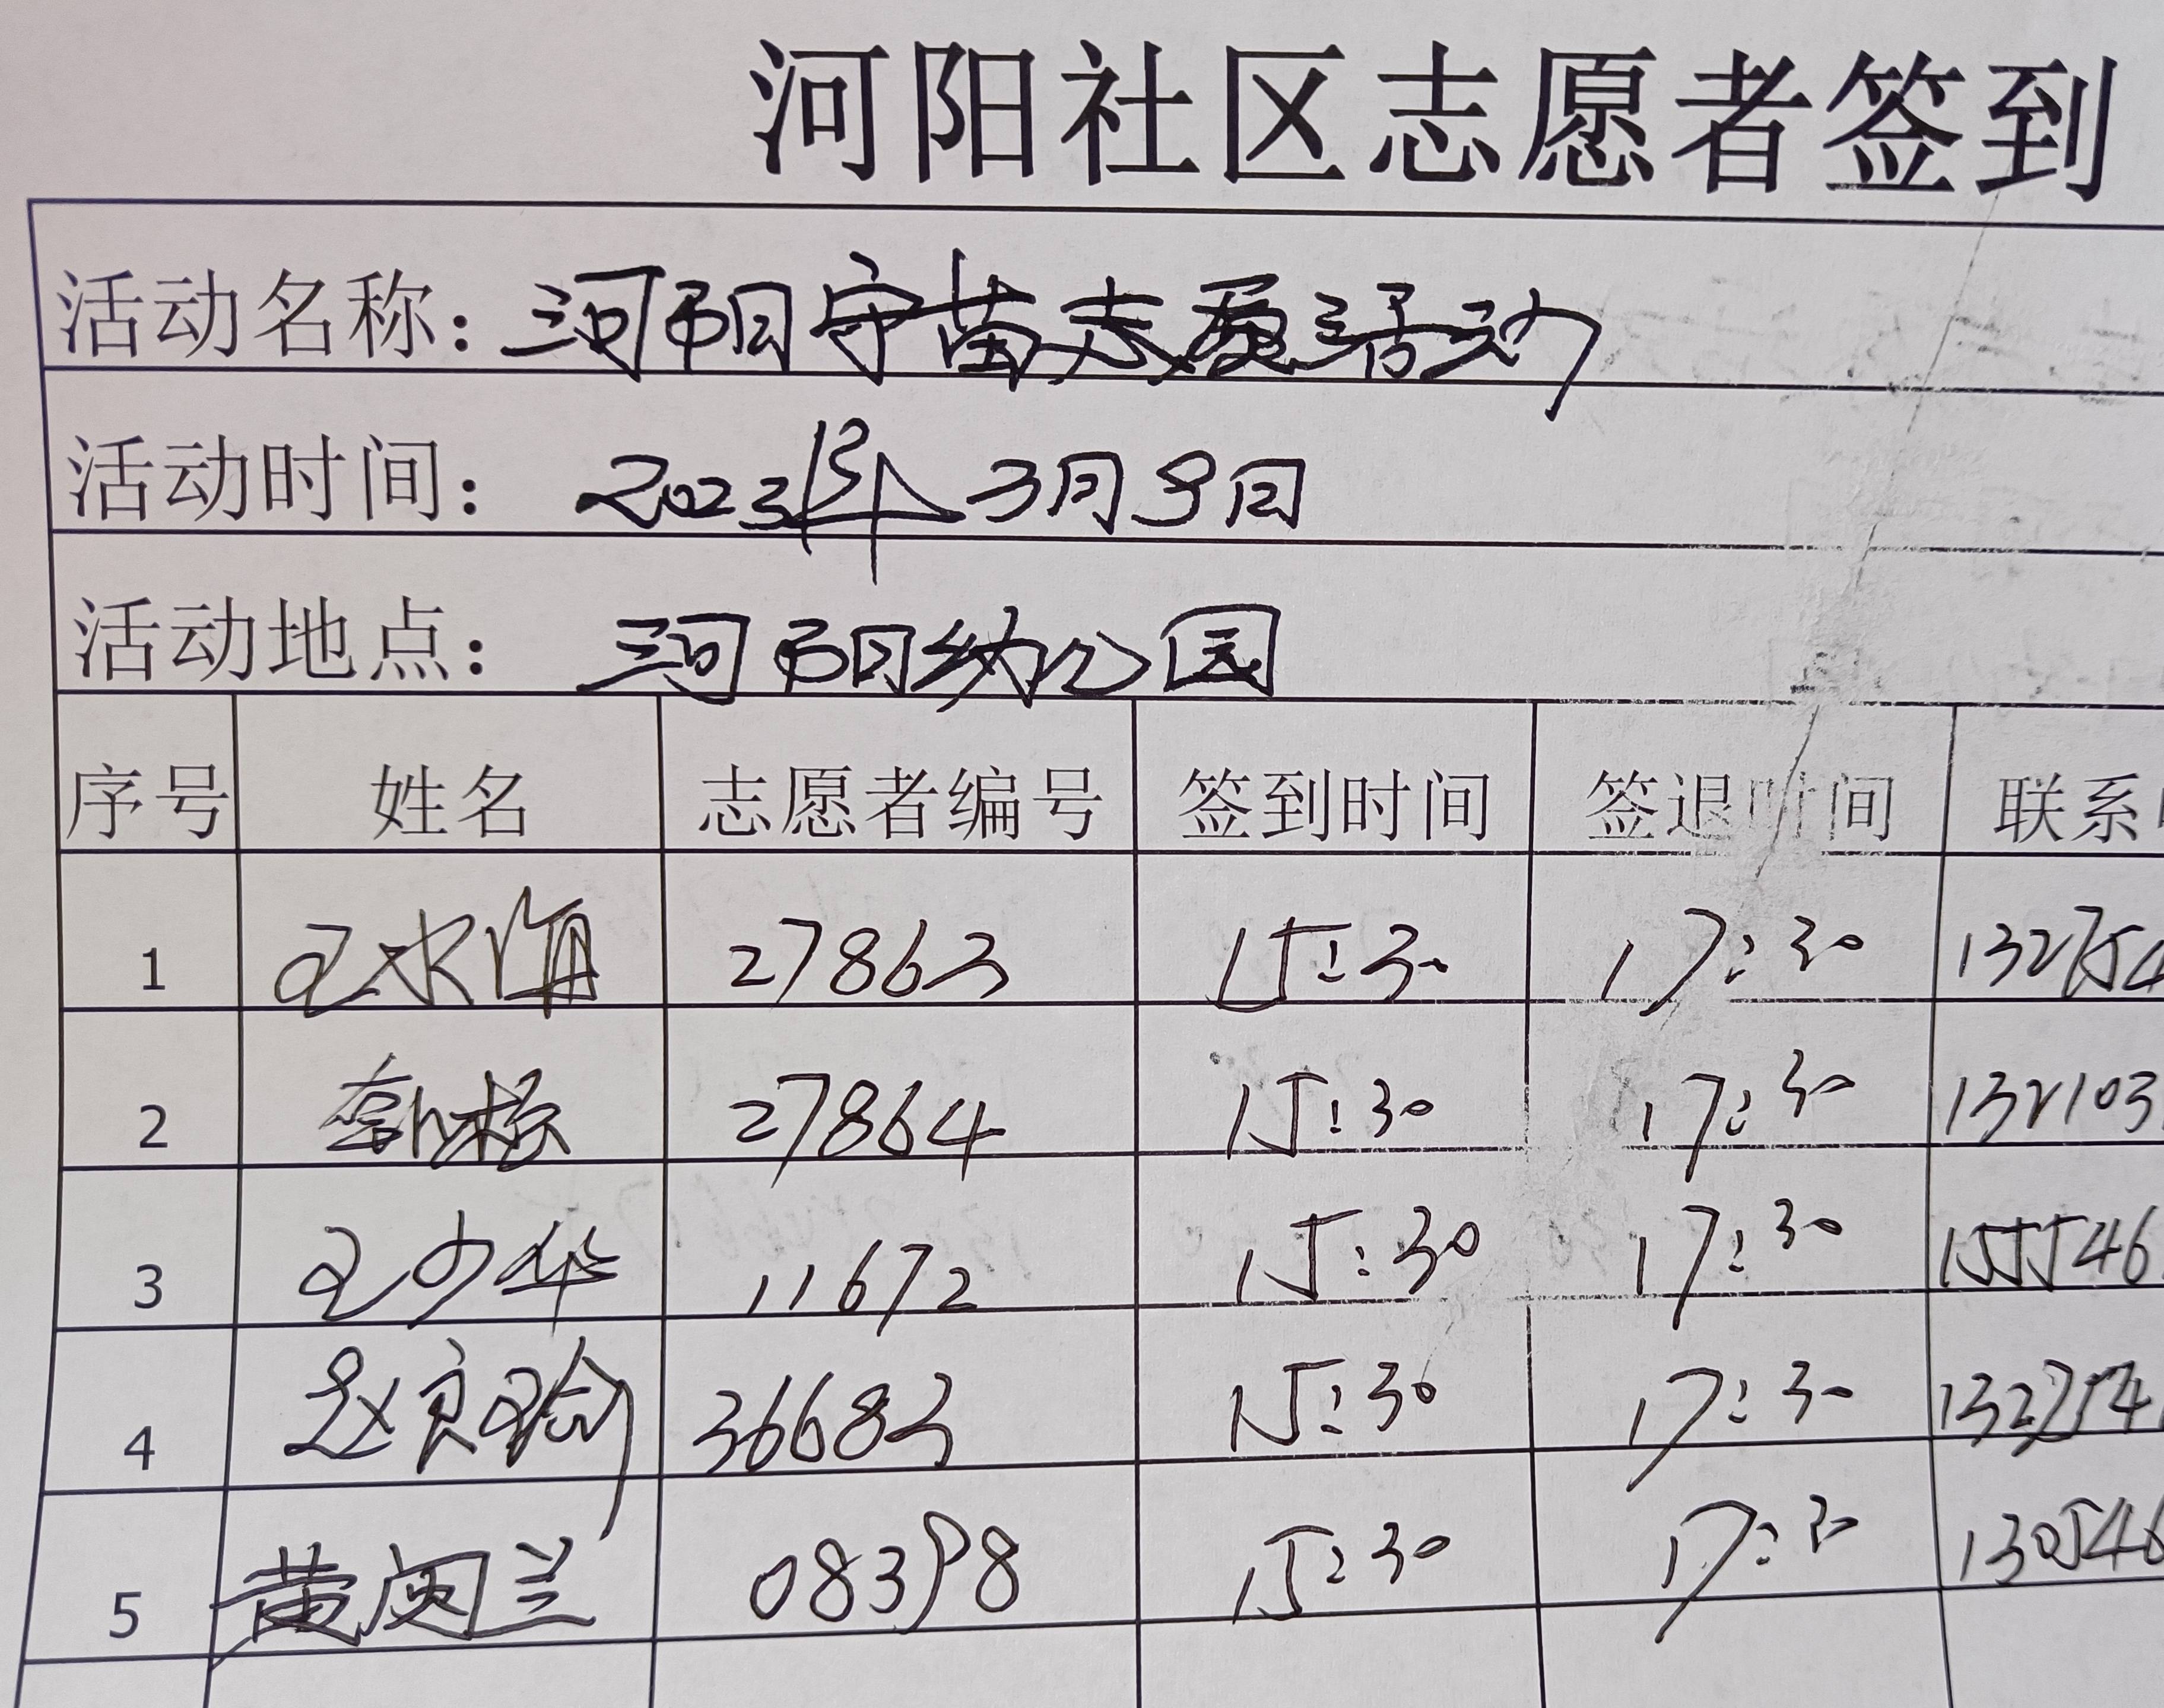 河阳社区志愿者签到
活动名称：河阳守苗志愿活动
活动时间：2023年3月9日
活动地点：河阳幼儿园
序号 姓名 志愿者编号 签到时间 签退时间 联系
1 27863 15:30 17:30 132754
2 27864 15:30 17:30 132103
3 王少华 11672 15:30 17:30 155546
4 36683 15:30 17:30 132754
5 黄 兰 08398 15:30 17:30 130546